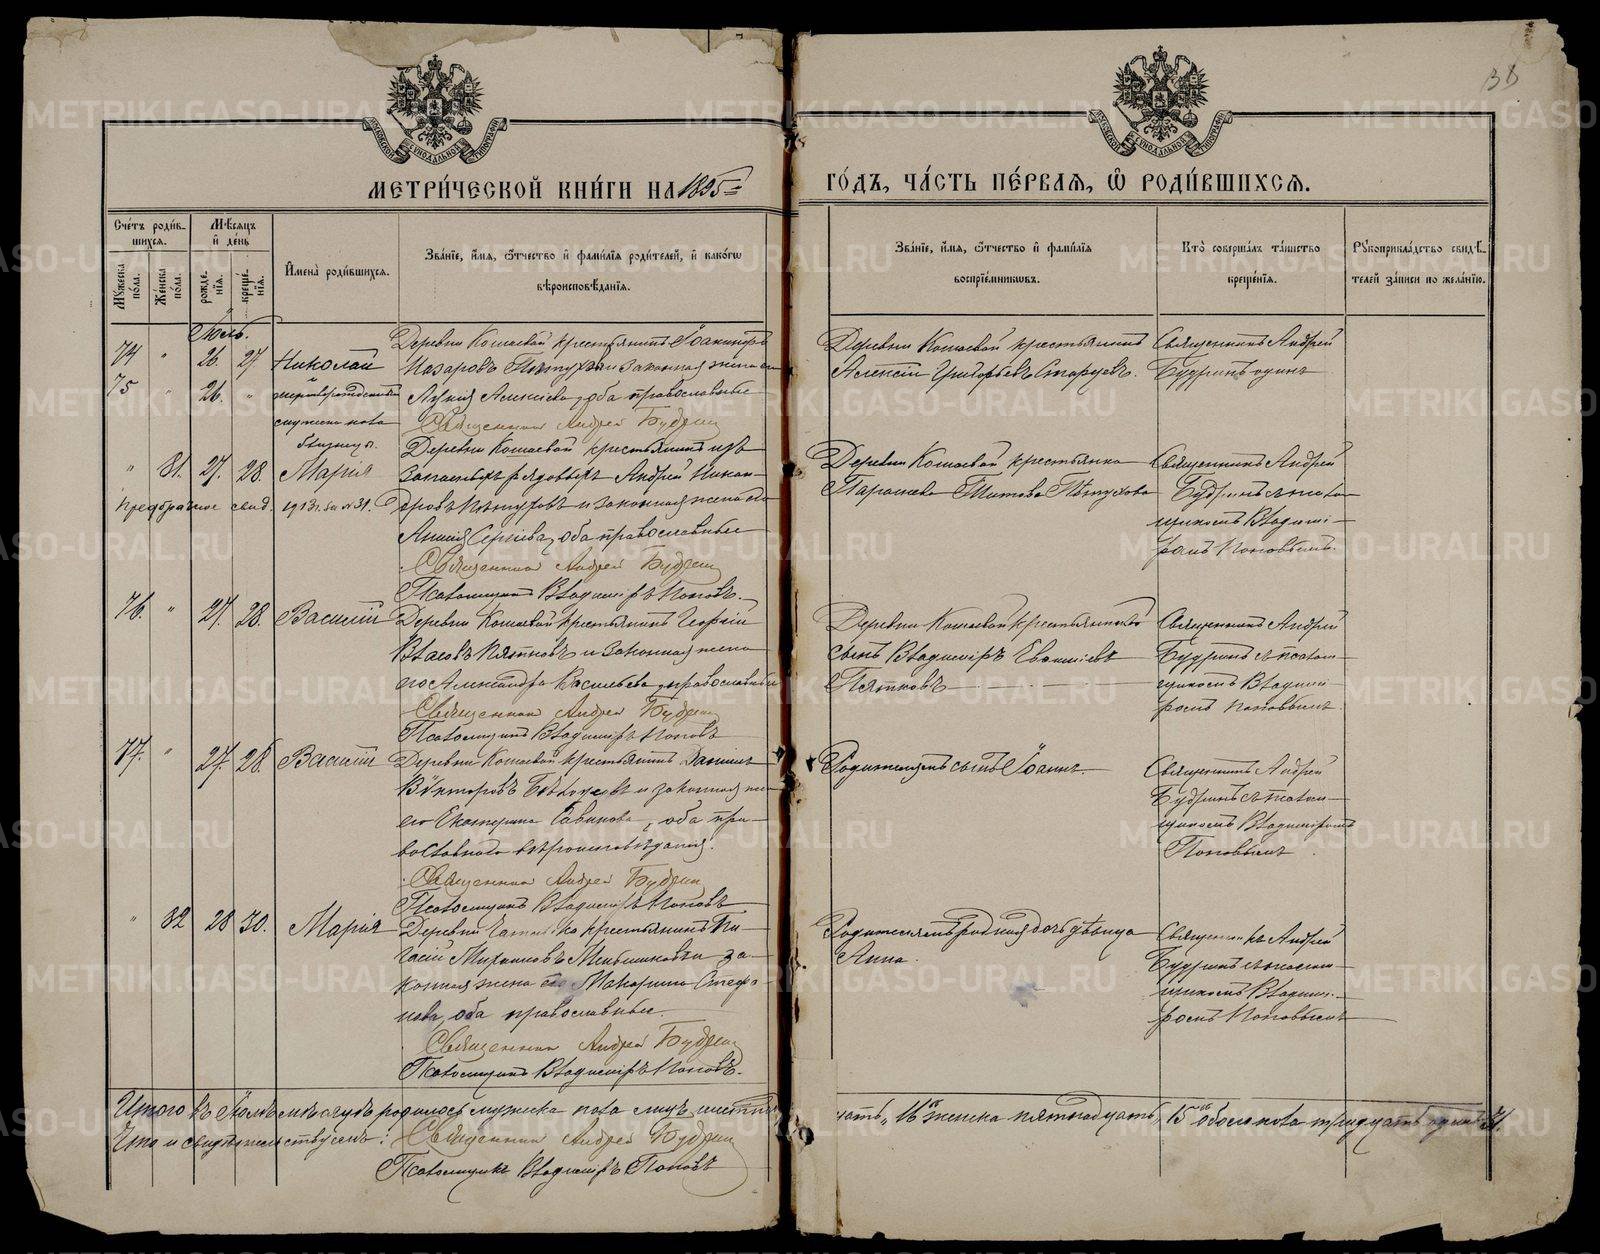 38
МЕТРИ́ЧЕСКОЙ КНИ́ГИ НА 1895
ГО́ДЪ, ЧА́СТЬ ПЕ́РВАѦ, Ѽ РОДИ́ВШИХСѦ.
Сче́тъ роди́в-
шихся.
Мꙋжеска по́ла.
Же́нска по́ла.
Мѣ́сяцъ
и҆ де́нь
рожде́-
нїѧ.
креще́-
нїѧ.
И҆мена̀ роди́вшихся.
Зва́нїе, и҆́мѧ, ѻ҆́тчество и҆ фами́лїѧ роди́телей, и҆ како́гѡ
вѣроисповѣ́данїѧ.
Зва́нїе, и҆́мѧ, ѻ҆́тчество и҆ фами́лїѧ
воспрїе́мникѡвъ.
Кто̀ соверша́лъ та́инство
креще́нїѧ.
Рꙋкоприкла́дство свидѣ́-
телей за́писи по жела́нїю.
Іюль.
74 " 26. 27. Николай
Деревни Кошаевой крестьянинъ Іоакимъ
Назаровъ Пѣтуховъ и законная жена его
Лукія Алексіева, оба православные
Священник Андрей Будрин
Деревни Кошаевой крестьянинъ
Алексій Григорьевъ Старцевъ.
Священникъ Андрей
Будринъ одинъ
75 " 26. " мертворожденный
мужска пола
близнецъ.
" 81. 27. 28. Марія
Деревни Кошаевой крестьянинъ изъ
запасныхъ рядовыхъ Андрей Никан-
дровъ Пѣтуховъ и законная жена его
Анна Сергіева, оба православные
Священник Андрей Будрин
Псаломщикъ Владиміръ Поповъ.
1913 г. за № 31.
Деревни Кошаевой крестьянка
Параскева Титова Пѣтухова
Священникъ Андрей
Будринъ съ псалом-
щикомъ Владимі-
ромъ Поповымъ.
76. " 27. 28. Василій
Деревни Кошаевой крестьянинъ Георгій
Власовъ Пятковъ и законная жена
его Александра Васильева, православные
Священник Андрей Будрин
Псаломщикъ Владиміръ Поповъ
Деревни Кошаевой крестьянскій
сынъ Владиміръ
Пятковъ
Священникъ Андрей
Будринъ съ псалом-
щикомъ Владимі-
ромъ Поповымъ.
77. " 27. 28. Василій
Деревни Кошаевой крестьянинъ Даніилъ
Викторовъ и законная жена
его Екатерина Саввинова, оба пра-
вославнаго вѣроисповѣданія.
Священник Андрей Будрин
Псаломщикъ Владиміръ Поповъ
Родителямъ сынъ Іоаннъ.
Священникъ Андрей
Будринъ съ псалом-
щикомъ Владиміромъ
Поповымъ
" 82 28 30. Марія
крестьянинъ
Меньшиковъ и за-
конная жена его Макарина Стефа-
нова, оба православные.
Священник Андрей Будрин
Псаломщикъ Владиміръ Поповъ.
Родителямъ родная дочь дѣвица
Анна.
Священникъ Андрей
Будринъ съ псалом-
щикомъ Владимі-
ромъ Поповымъ
Итого въ Іюлѣ мѣсяцѣ родилось мужска пола лицъ шестнад-
цать, 16 женска пятнадцать, 15 обоего пола тридцать одинъ 31.
Что и свидѣтельствуемъ: Священник Андрей Будрин
Псаломщикъ Владиміръ Поповъ
METRIKI.GASO-URAL.RU